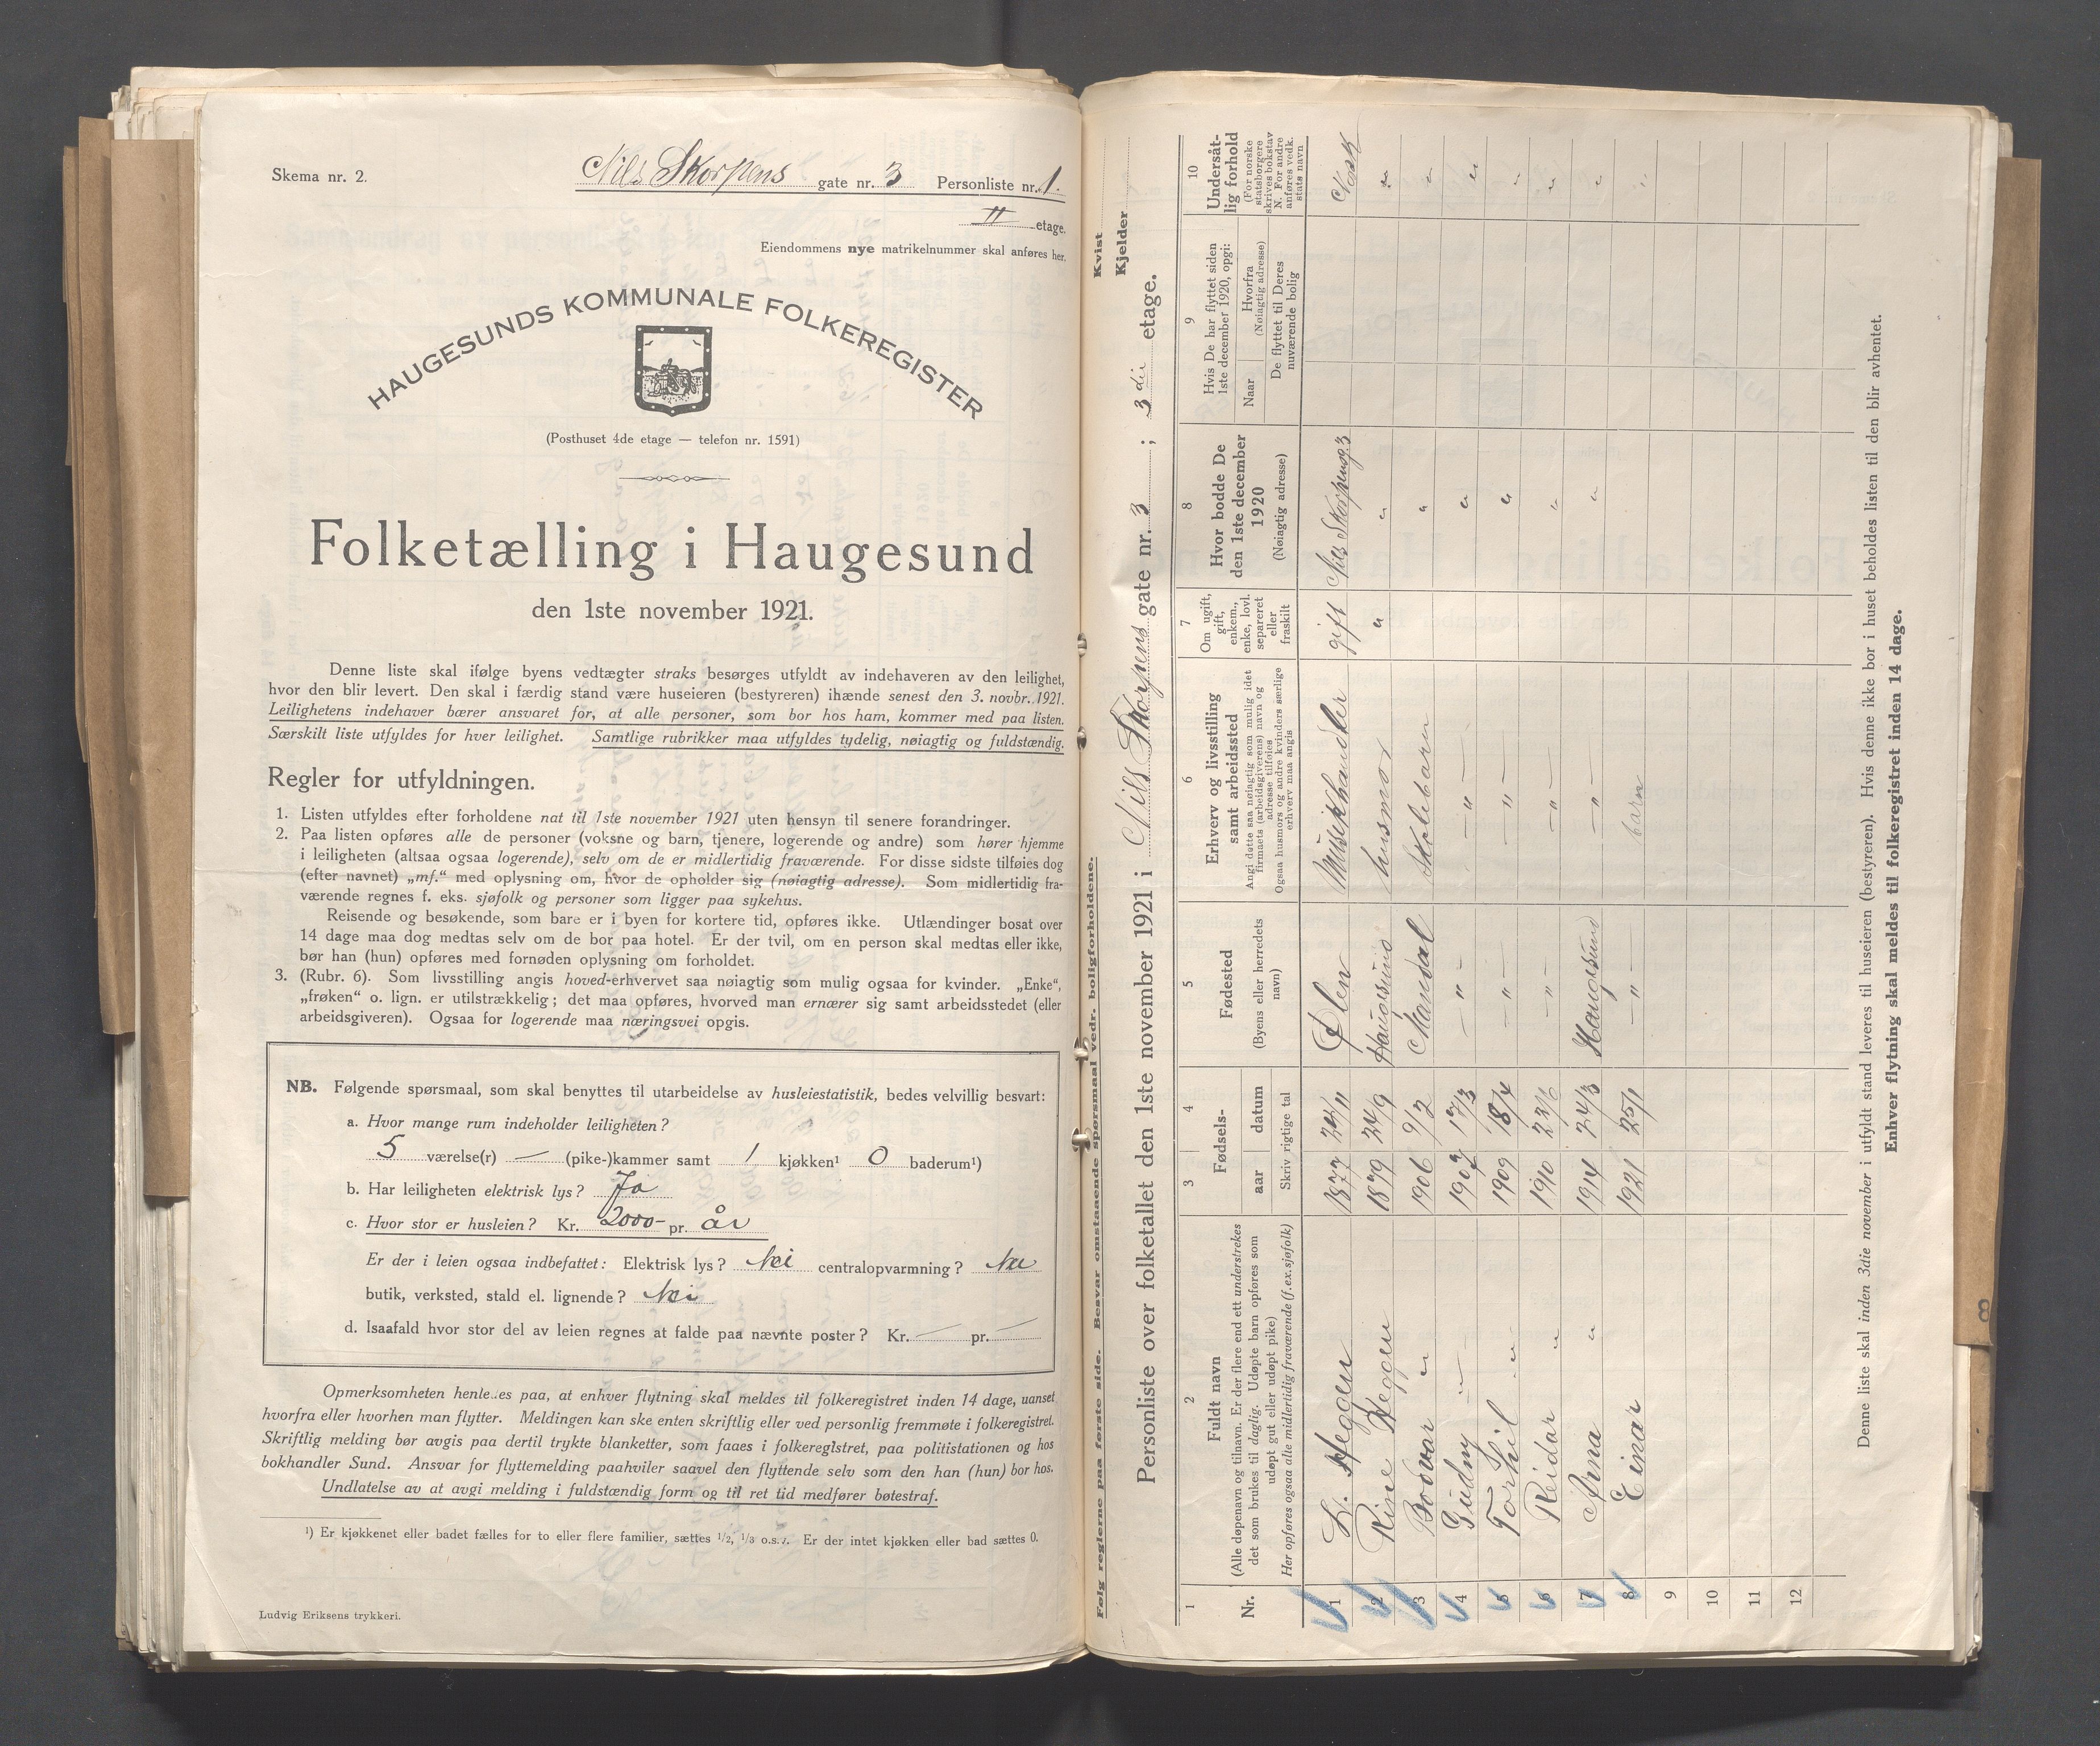 Skema nr. 2.
Nils Skorpens gate nr. 3 Personliste nr. 1.
II etage.
Eiendommens nye matrikelnummer skal anføres her.
HAUGESUNDS KOMMUNALE FOLKEREGISTER
(Posthuset 4de etage — telefon nr. 1591)
Folketælling i Haugesund
den 1ste november 1921.
Denne liste skal ifølge byens vedtægter straks besørges utfyldt av indehaveren av den leilighet,
hvor den blir levert. Den skal i færdig stand være huseieren (bestyreren) ihænde senest den 3. novbr. 1921.
Leilighetens indehaver bærer ansvaret for, at alle personer, som bor hos ham, kommer med paa listen.
Særskilt liste utfyldes for hver leilighet. Samtlige rubrikker maa utfyldes tydelig, nøiagtig og fuldstændig.
Regler for utfyldningen.
1. Listen utfyldes efter forholdene nat til 1ste november 1921 uten hensyn til senere forandringer.
2. Paa listen opføres alle de personer (voksne og barn, tjenere, logerende og andre) som hører hjemme
i leiligheten (altsaa ogsaa logerende), selv om de er midlertidig fraværende. For disse sidste tilføies dog
(efter navnet) „mf.“ med oplysning om, hvor de opholder sig (nøiagtig adresse). Som midlertidig fra-
værende regnes f. eks. sjøfolk og personer som ligger paa sykehus.
Reisende og besøkende, som bare er i byen for kortere tid, opføres ikke. Utlændinger bosat over
14 dage maa dog medtas selv om de bor paa hotel. Er der tvil, om en person skal medtas eller ikke,
bør han (hun) opføres med fornøden oplysning om forholdet.
3. (Rubr. 6). Som livsstilling angis hoved-erhvervet saa nøiagtig som mulig ogsaa for kvinder. „Enke“,
„frøken“ o. lign. er utilstrækkelig; det maa opføres, hvorved man ernærer sig samt arbeidsstedet (eller
arbeidsgiveren). Ogsaa for logerende maa næringsvei opgis.
NB. Følgende spørsmaal, som skal benyttes til utarbeidelse av husleiestatistik, bedes velvillig besvart:
a. Hvor mange rum indeholder leiligheten?
5 værelse(r) — (pike-)kammer samt 1 kjøkken¹ 0 baderum¹)
b. Har leiligheten elektrisk lys? Ja
c. Hvor stor er husleien? Kr. 2000- pr. år
Er der i leien ogsaa indbefattet: Elektrisk lys? Nei centralopvarmning? Nei
butik, verksted, stald el. lignende? Nei
d. Isaafald hvor stor del av leien regnes at falde paa nævnte poster? Kr. — pr. —
Opmerksomheten henledes paa, at enhver flytning skal meldes til folkeregistret inden 14 dage, uanset
hvorfra eller hvorhen man flytter. Meldingen kan ske enten skriftlig eller ved personlig fremmøte i folkeregistret.
Skriftlig melding bør avgis paa dertil trykte blanketter, som faaes i folkeregistret, paa politistationen og hos
bokhandler Sund. Ansvar for flyttemelding paahviler saavel den flyttende selv som den han (hun) bor hos.
Undlatelse av at avgi melding i fuldstændig form og til ret tid medfører bøtestraf.
¹) Er kjøkkenet eller badet fælles for to eller flere familier, sættes 1/2, 1/3 o.s.v. Er der intet kjøkken eller bad sættes 0.
Ludvig Eriksens trykkeri.
Følg reglerne paa første side. Besvar omstaaende spørsmaal vedr. boligforholdene.
Kvist
Kjelder
Personliste over folketallet den 1ste november 1921 i Nils Skorpens gate nr. 3 ; 3die etage.
1 2 3 4 5 6 7 8 9 10
Nr.
Fuldt navn
(Alle døpenavn og tilnavn. Er der flere end ett understrekes
det som brukes til daglig. Udøpte barn opføres som
udøpt gut eller udøpt pike)
Her opføres ogsaa alle midlertidig fraværende (f. ex. sjøfolk)
Fødsels-
aar datum
Skriv rigtige tal
Fødested
(Byens eller herredets
navn)
Erhverv og livsstilling
samt arbeidssted
Angi dette saa nøiagtig som mulig idet
firmaets (arbeidsgiverens) navn og
adresse tilføies
Ogsaa husmors og andre kvinders særlige
erhverv maa angis
Om ugift,
gift,
enkem.,
enke, lovl.
separeret
eller
fraskilt
Hvor bodde De
den 1ste december
1920
(Nøiagtig adresse)
Hvis De har flyttet siden
1ste december 1920, opgi:
Naar
Hvorfra
(Nøiagtig adresse)
De flyttet til Deres
nuværende bolig
Undersåt-
lig forhold
(For norske
statsborgere
skrives bokstav
N. For andre
anføres vedk.
stats navn
1 L. Heggen 1877 24/11 Ølen Musikhandler gift Nils Skorpensg. 3 Norsk
2 Rine Heggen 1879 24/9 Haugesund husmor " " "
3 Bodvar " 1906 9/2 Mandal Skolebarn " "
4 Gudny " 1907 17/3 — " — — " — " "
5 Torhil " 1909 18/4 — " — — " — " "
6 Reidar " 1910 23/6 — " — — " — " "
7 Arna " 1914 24/3 Haugesund — " — " "
8 Einar 1921 25/1 — " — barn "
9
10
11
12
Denne liste skal inden 3die november i utfyldt stand leveres til huseieren (bestyreren). Hvis denne ikke bor i huset beholdes listen til den blir avhentet.
Enhver flytning skal meldes til folkeregistret inden 14 dage.
8